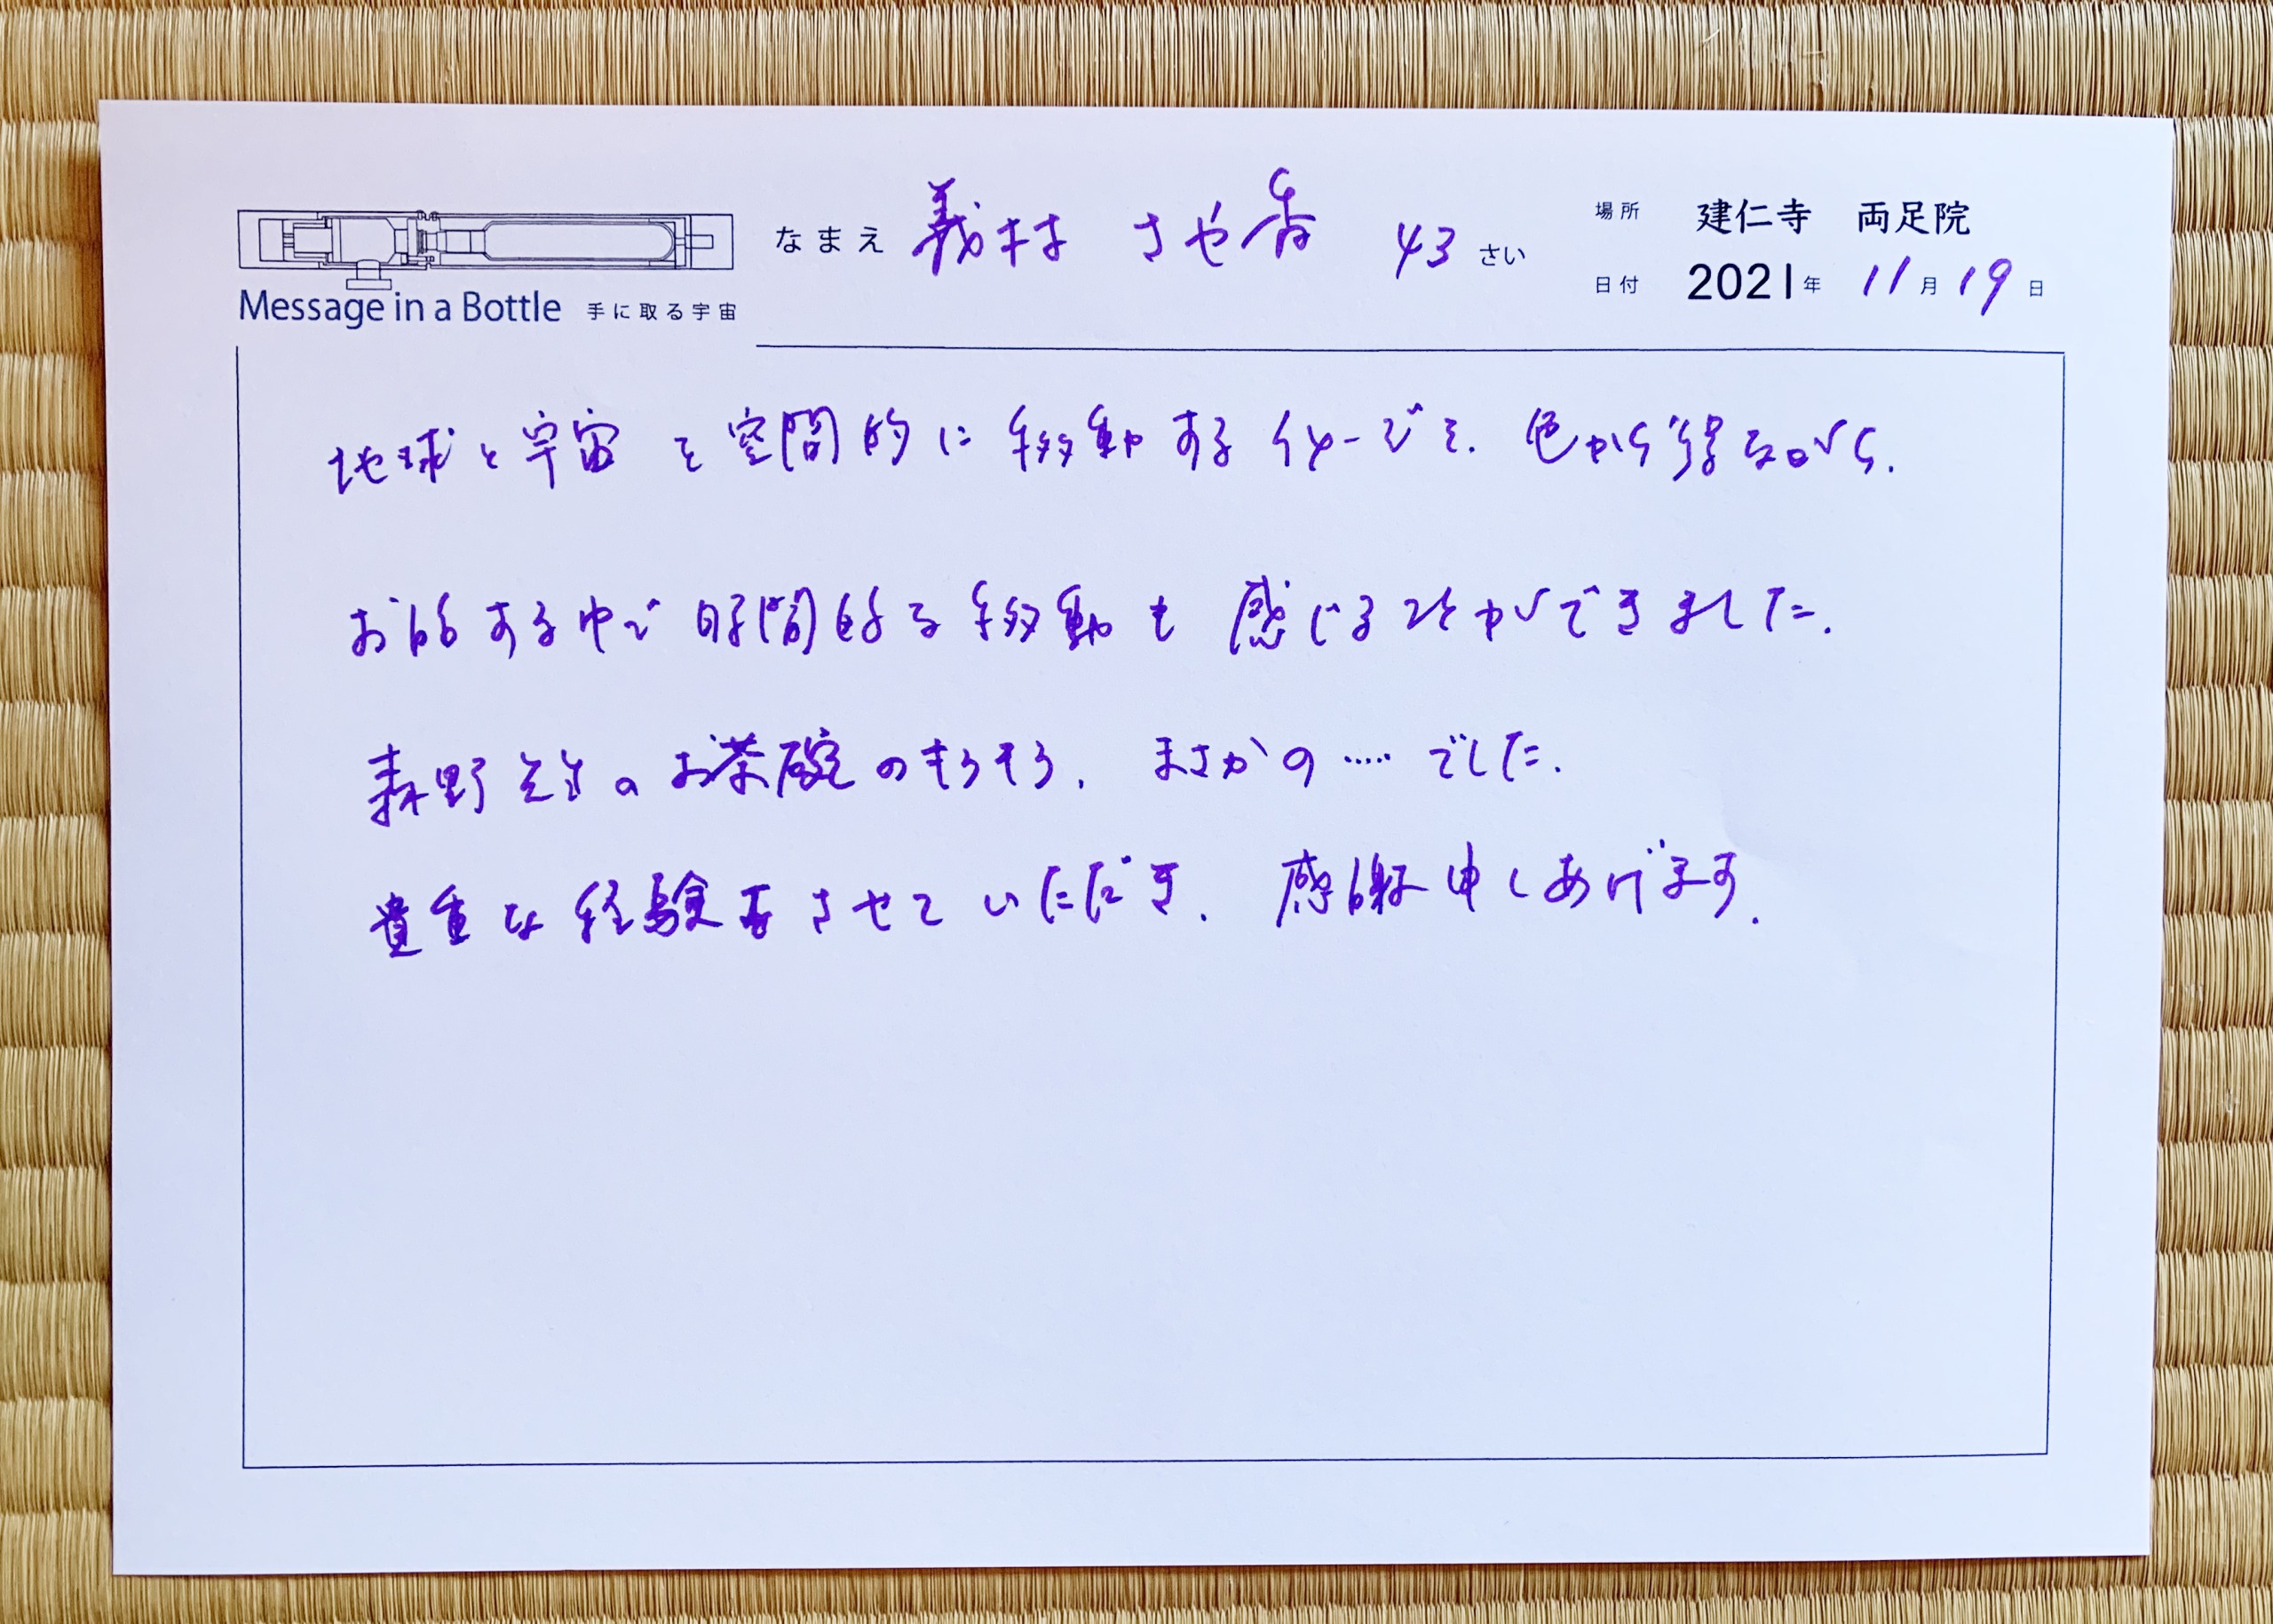 なまえ 義村 さや香 43 さい
場所 建仁寺 両足院
日付 2021年 11月19日
Message in a Bottle 手に取る宇宙
地球と宇宙を空間的に移動するイメージを、色から得ながら、
お話する中で時間的な移動も感じることができました。
森野さんのお茶碗のもろもろ、まさかの….. でした。
貴重な経験をさせていただき、感謝申しあげます。